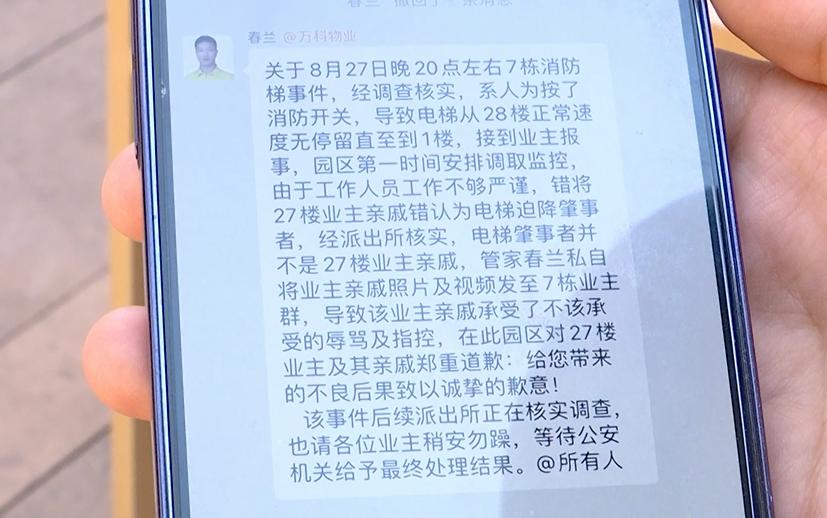 春兰 撤回了一条消息
春兰 @万科物业
关于8月27日晚20点左右7栋消防
梯事件，经调查核实，系人为按了
消防开关，导致电梯从28楼正常速
度无停留直至到1楼，接到业主报
事，园区第一时间安排调取监控，
由于工作人员工作不够严谨，错将
27楼业主亲戚错认为电梯迫降肇事
者，经派出所核实，电梯肇事者并
不是27楼业主亲戚，管家春兰私自
将业主亲戚照片及视频发至7栋业主
群，导致该业主亲戚承受了不该承
受的辱骂及指控，在此园区对27楼
业主及其亲戚郑重道歉：给您带来
的不良后果致以诚挚的歉意！
该事件后续派出所正在核实调查，
也请各位业主稍安勿躁，等待公安
机关给予最终处理结果。@所有人